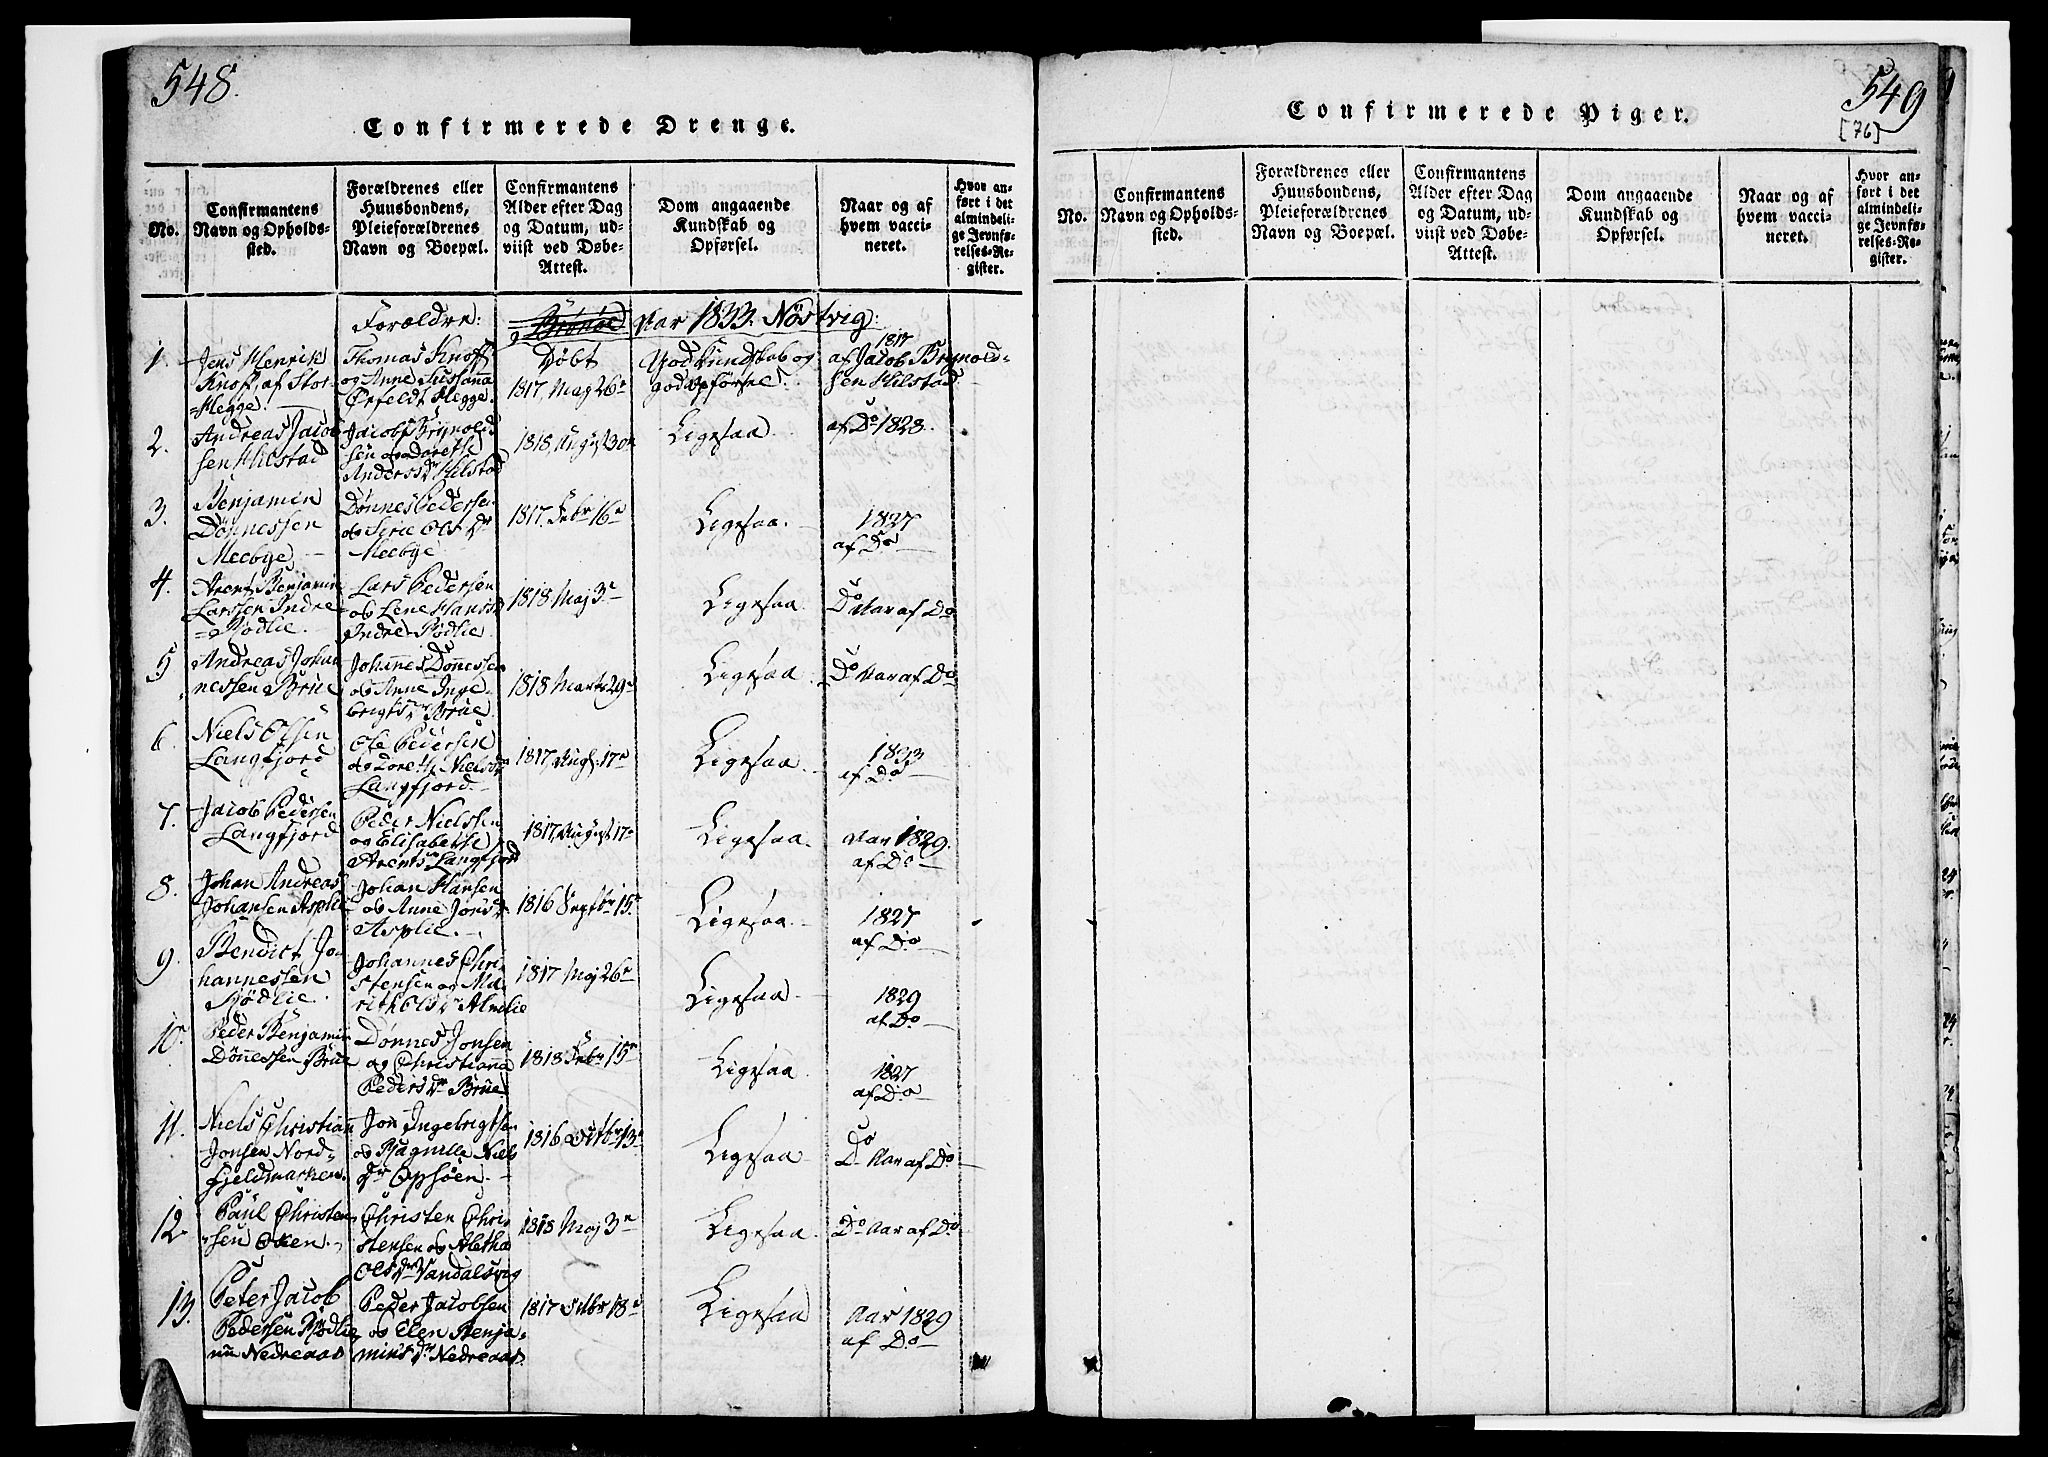 548.
Confirmerede Drenge.
No.
Confirmantens
Navn og Opholds-
sted.
Forældrenes eller
Huusbondens,
Pleieforældrenes
Navn og Boepæl.
Confirmantens
Alder efter Dag
og Datum, ud-
viist ved Døbe-
Attest.
Dom angaaende
Kundskab og
Opførsel.
Naar og af
hvem vacci-
neret.
Hvor an-
ført i det
almindeli-
ge Jevnfø-
relses-Re-
gister.
Forældre:
Brönöe Aar 1833. Nöstvig:
1.
Jens Henrik
Knoff af Stor-
=Hegge.
Thomas Knoff
og Anne Sussanna
Örfeldt Hegge.
Döbt
1817, Maj 26e
God Kundskab og
god Opförsel.
1817
af Jacob Brynold-
sen Hilstad
2.
Andreas Jacob
sen Hilstad
Jacob Brynolds
sen og Dorethe
Andersdr Hilstad
1818, August 30e
Ligesaa
af Do 1828.
3.
Benjamin
Dönnessen
Meebye
Dönnes Pedersen
og Sirie Olsdr
Meebye
1817, Febr 16e
Ligesaa.
1827
af Do
4.
Arent Benjamin
Larssen Indre
=Rödlie.
Lars Pedersen
og Lene Hansd
Indre Rödlie.
1818 Maj 3e
Ligesaa.
Do Aar af Do
5
Andreas Johan
nessen Brue
Johannes Dönnessen
og Anne Inge
brigtsdr Brue
1818 Marts 29e
Ligesaa
Do Aar af Do
6.
Niels Olsen
Langfjord
Ole Pedersen
og Dorethe Nielsdr
Langfjord
1817, Aug. 17e
Ligesaa
1833
af Do
7.
Jacob Pedersen
Langfjord
Peder Nielssen
og Elisabethe
Arentsdr Langfjord
1817, August 17e
Ligesaa.
Aar 1829.
af Do
8.
Johan Andreas
Johansen Asplie
Johan Hansen
og Anne Jonsdr
Asplie.
1816 Septbr 15e
Ligesaa.
1827
af Do
9.
Bendict Jo-
hannessen
Rödlie.
Johannes Chri
stensen og Ma
rith Olsdr Almlie
1817 Maj 26e
Ligesaa
1829
af Do
10.
Peder Benjamin
Dönnessen Brue
Dönnes Jonsen
og Christianna
Pedersdr Brue
1818 Febr 15e
Ligesaa
1827
af Do
11.
Niels Christian
Jonsen Nord-
fjeldmarken.
Jon Ingebrigtsen
og Ragnille Niels
dr Opsöen.
1816 Octbr 13e
Ligesaa
Do Aar af Do
12
Paul Christen
sen Oxen.
Christen Chri-
stensen og Aletha
Olsdr Vandalsvig
1818 Maj 3e
Ligesaa.
Do Aar af Do
13.
Peter Jacob
Pedersen Rödlie
nu Nedreaas
Peder Jacobsen
og Elen Benja-
minsdr Nedreaas.
1817 Octbr 18e
Ligesaa
Aar 1829
af Do
549
[76]
Confirmerede Piger.
No.
Confirmantens
Navn og Opholds-
sted.
Forældrenes eller
Huusbondens,
Pleieforældrenes
Navn og Boepæl.
Confirmantens
Alder efter Dag
og Datum, ud-
viist ved Døbe-
Attest.
Dom angaaende
Kundskab og
Opførsel.
Naar og af
hvem vacci-
neret.
Hvor an-
ført i det
almindeli-
ge Jevnfø-
relses-Re-
gister.